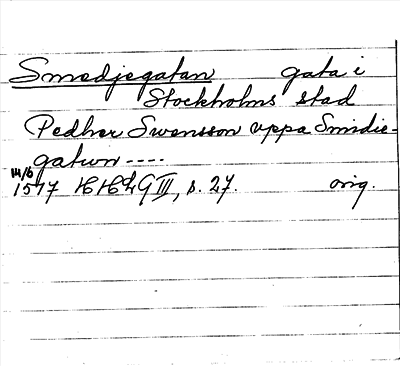 Smedjegatan gata i
Stockholms stad
Pedher Swensson uppa Smidie-
gatwn ----
14/6
1517 HHLG III, s. 27. orig.